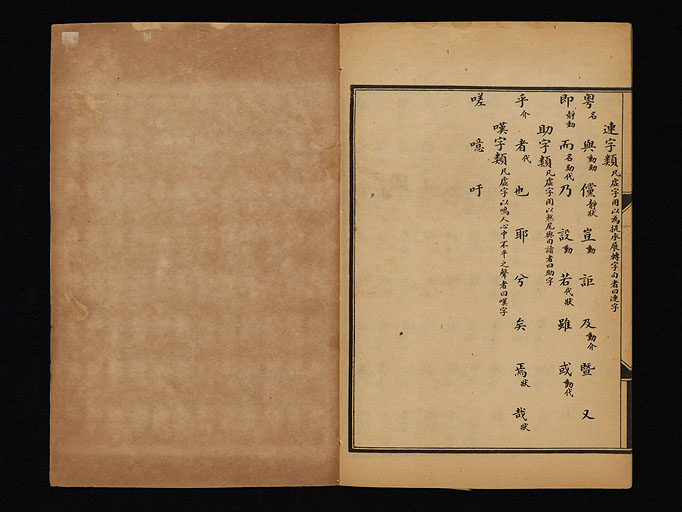 連字類凡虛字用以為提承展轉字句者曰連字
粵名 與動助 儻靜狀 豈動 詎 及動介 暨 又
即靜動 而名動代 乃 設動 若代狀 雖 或動代
助字類凡虛字用以煞尾與句讀者曰助字
乎介 者代 也 耶 兮 矣 焉狀 哉狀
嘆字類凡虛字以鳴人心中不平之聲者曰嘆字
嗟 噫 吁